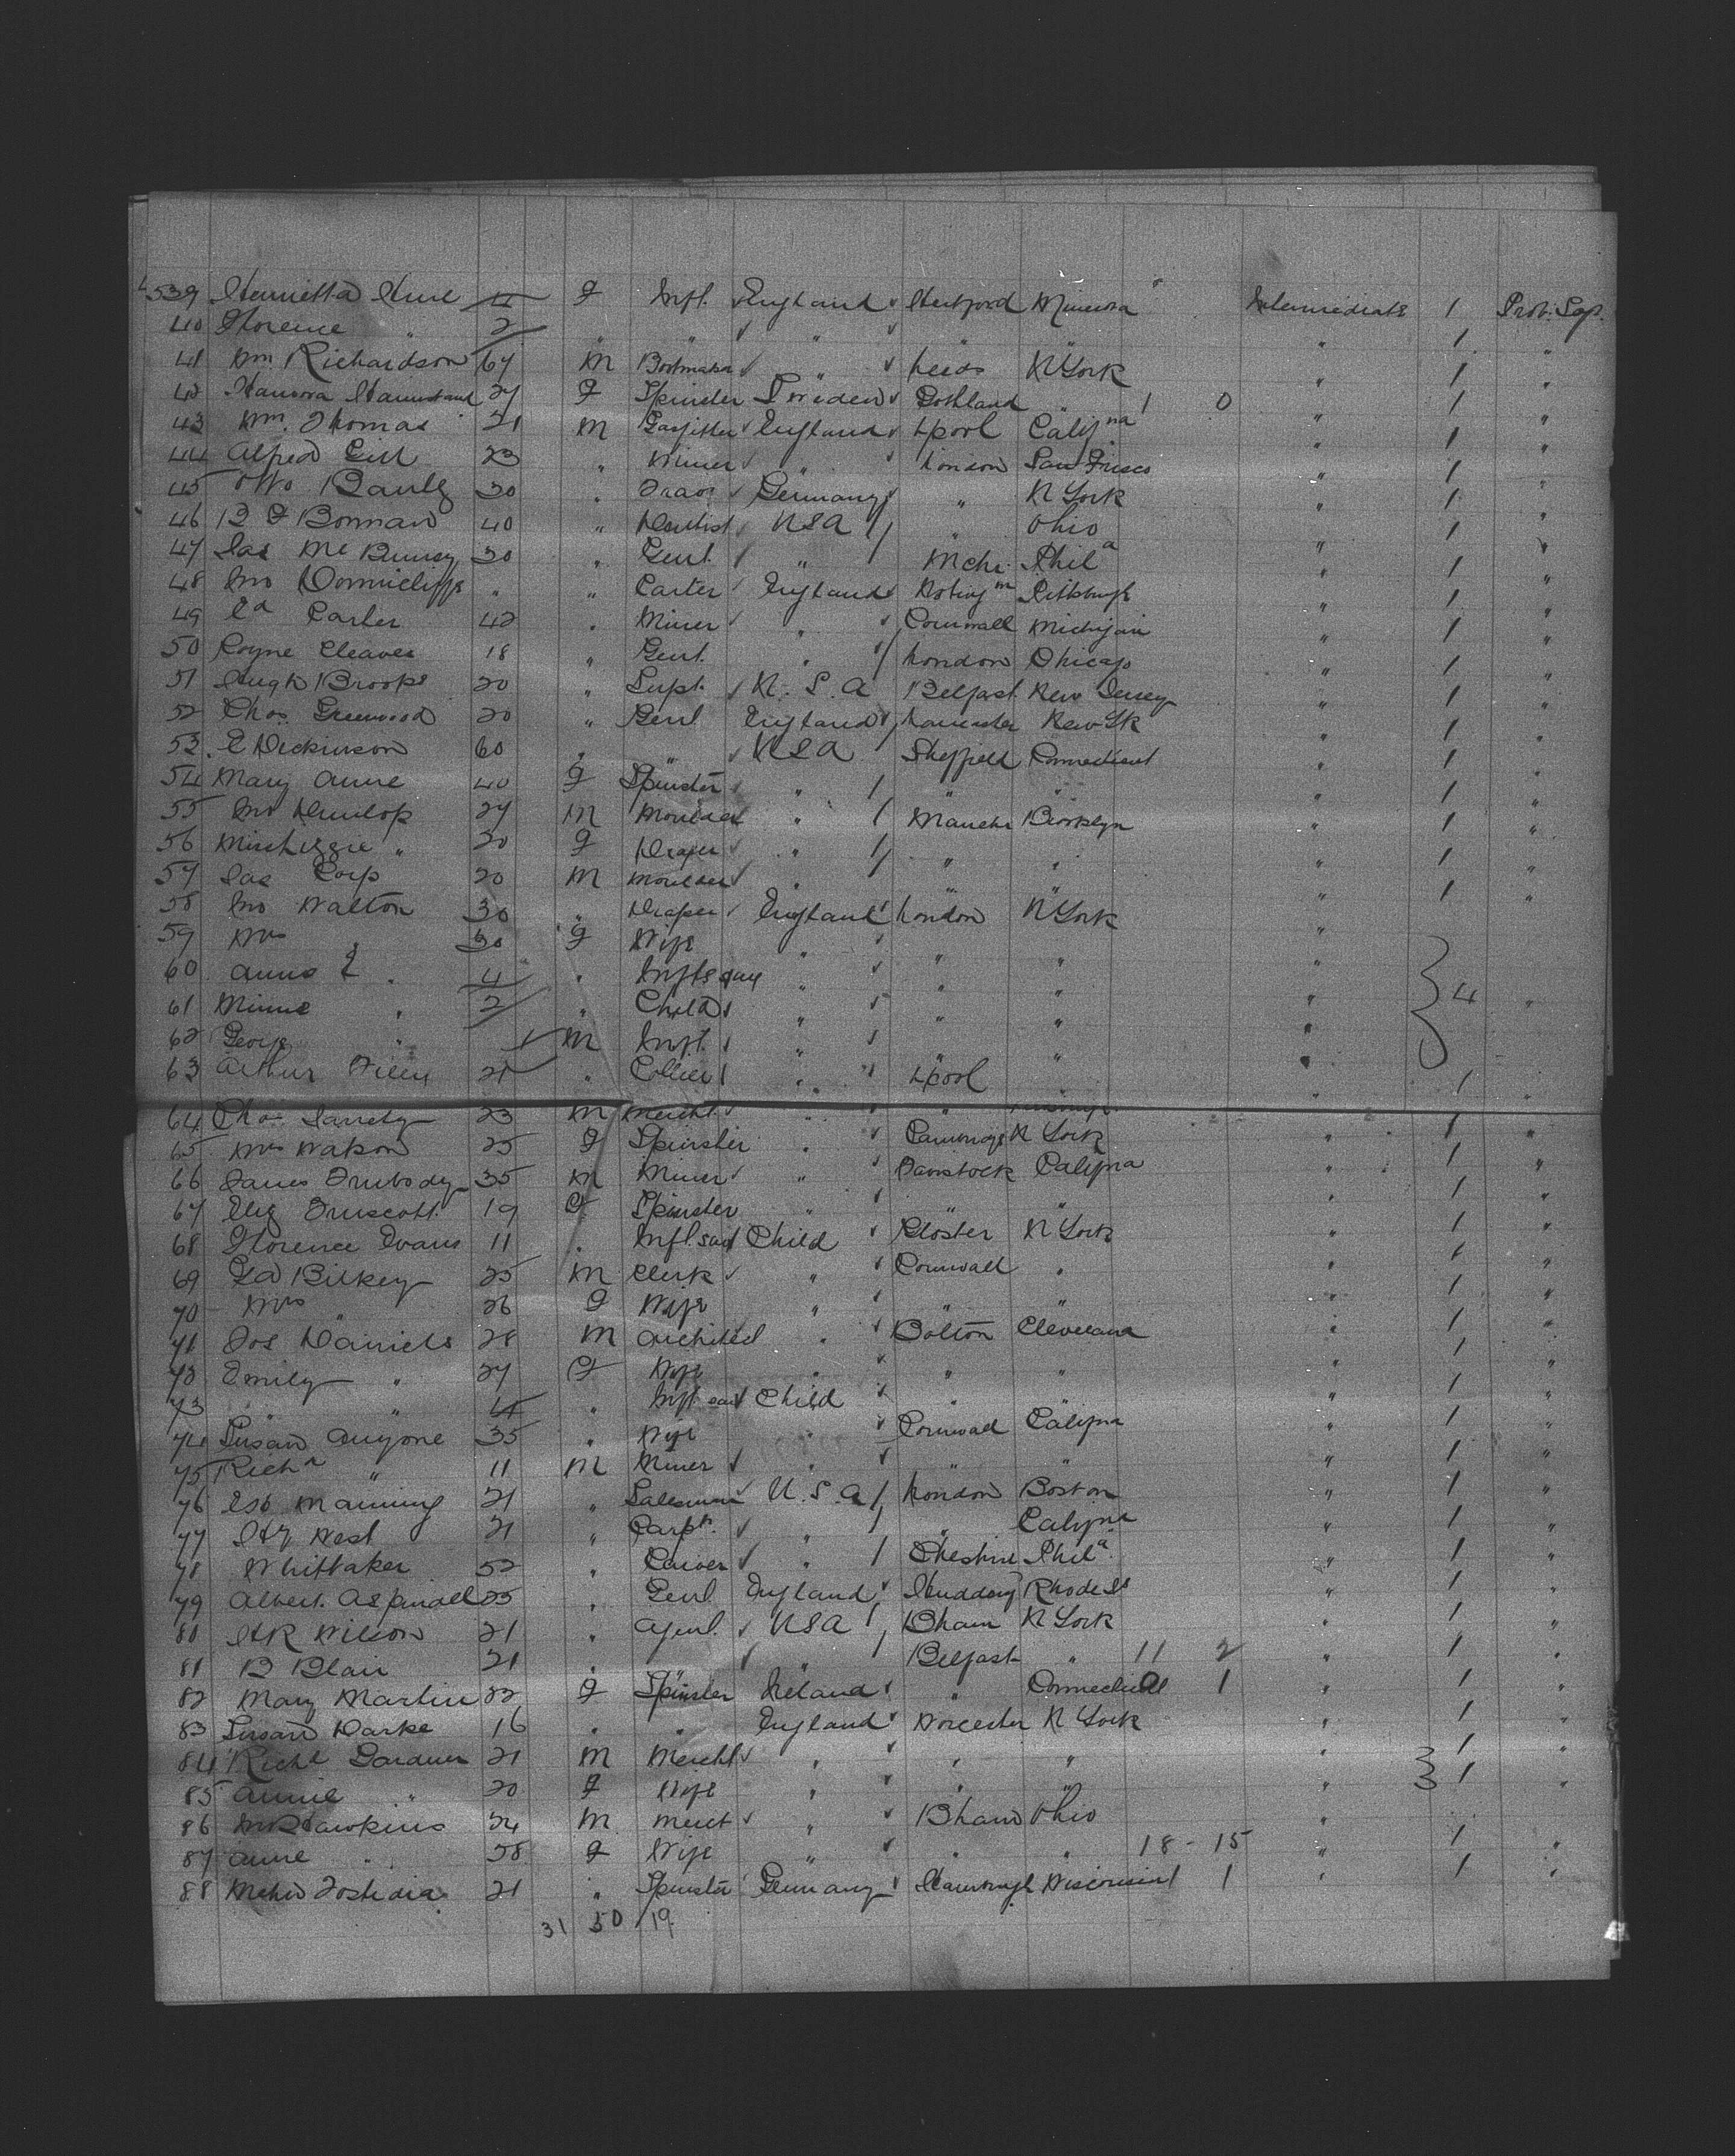 539 Henrietta Hure 4 F Inft. England Hertford Minesota Intermediate 1 Prot. Sap.
40 Florence " 2 " " " " " 1 "
41 Wm Richardson 67 M Bootmaker " Leeds N York " 1 "
42 27 F Spinster Sweden Gothland " 1 0 " 1 "
43 Wm. Thomas 21 M Gasfitter England Lpool Califna " 1 "
44 Alfred Gill 23 " Miner " London San Frisco " 1 "
45 Otto 30 " Germany " N York " 1 "
46 B F Bonman 40 " Dentist USA " Ohio " 1 "
47 Jas Mc 30 " Gent. " Mchr. Phila " 1 "
48 Jno " " Carter England Notingm Pittsburgh " 1 "
49 Ed Carter 42 " Miner " Cornwall Michigan " 1 "
50 Coyne Cleaves 18 " Gent. " London Chicago " 1 "
51 Hugh Brooks 20 " Supt. U. S. A Belfast New Jersey " 1 "
52 Chas. Greenwood 20 " Genl England Lancaster New Yk " 1 "
53 E Dickinson 60 " " USA Sheffield Connecticut " 1 "
54 Mary Anne 40 F Spinster " " " " 1 "
55 Jno Dunlop 27 M Moulder " Manchr Brooklyn " 1 "
56 Miss Lizzie " 20 F Draper " " " " 1 "
57 Jas Corp 20 M Moulder " " 1 "
58 Jno Walton 30 " Draper England London N York "
59 Mrs " 30 F Wife " " " "
60 Annie E " 4 " Infts " " " " 4 "
61 Minnie " 2 " Child " " " "
62 George " 1 M Inft. " " " "
63 Arthur 21 " Collier " Lpool " " 1 "
64 Chas 23 M Mercht. " " " 1 "
65 Mrs Watson 25 F Spinster " Cambridge N York " 1 "
66 James Trubody 35 M Miner " Tavistock Califna " 1 "
67 Eliz Truscott. 19 F Spinster " " " " 1 "
68 Florence Evans 11 " Inft. Child Gloster N York " 1 "
69 Ed Bilkey 25 M Clerk " Cornwall " " 1 "
70 Mrs " 26 F Wife " " " " 1 "
71 Jos Daniels 28 M Architect " Bolton Cleveland " 1 "
72 Emily " 27 F Wife " " " " 1 "
73 " " 4 " Inft Child " " " 1 "
74 Susan Angove 35 " Wife " Cornwall Califna " 1 "
75 Richd " 11 M Miner " " " " 1 "
76 Manning 21 " Salesman U. S. A London Boston " 1 "
77 Hy West 21 " Carpr. " " Califna " 1 "
78 Whittaker 52 " Carver " Cheshire Phila. " 1 "
79 Albert Aspinall 25 " Genl England Huddersy Rhode Is " 1 "
80 H R Wilson 21 " Agent. USA Bham N York " 1 "
81 B Blair 21 " " " Belfast " 11 2 " 1 "
82 Mary Martin 22 F Spinster Ireland " Connecticut 1 " 1 "
83 Susan Darke 16 " " England Worcester N York " 1 "
84 Richd Gardner 21 M Mercht " " " " 1 "
85 Annie " 20 F Wife " " " " 1 "
86 Hawkins 24 M Merct " Bham Ohio "
87 Anne " 58 F Wife " " " 18 - 15 " 1 "
88 21 " Spinster Germany Wisconsin 1 " 1 "
31 50 19.